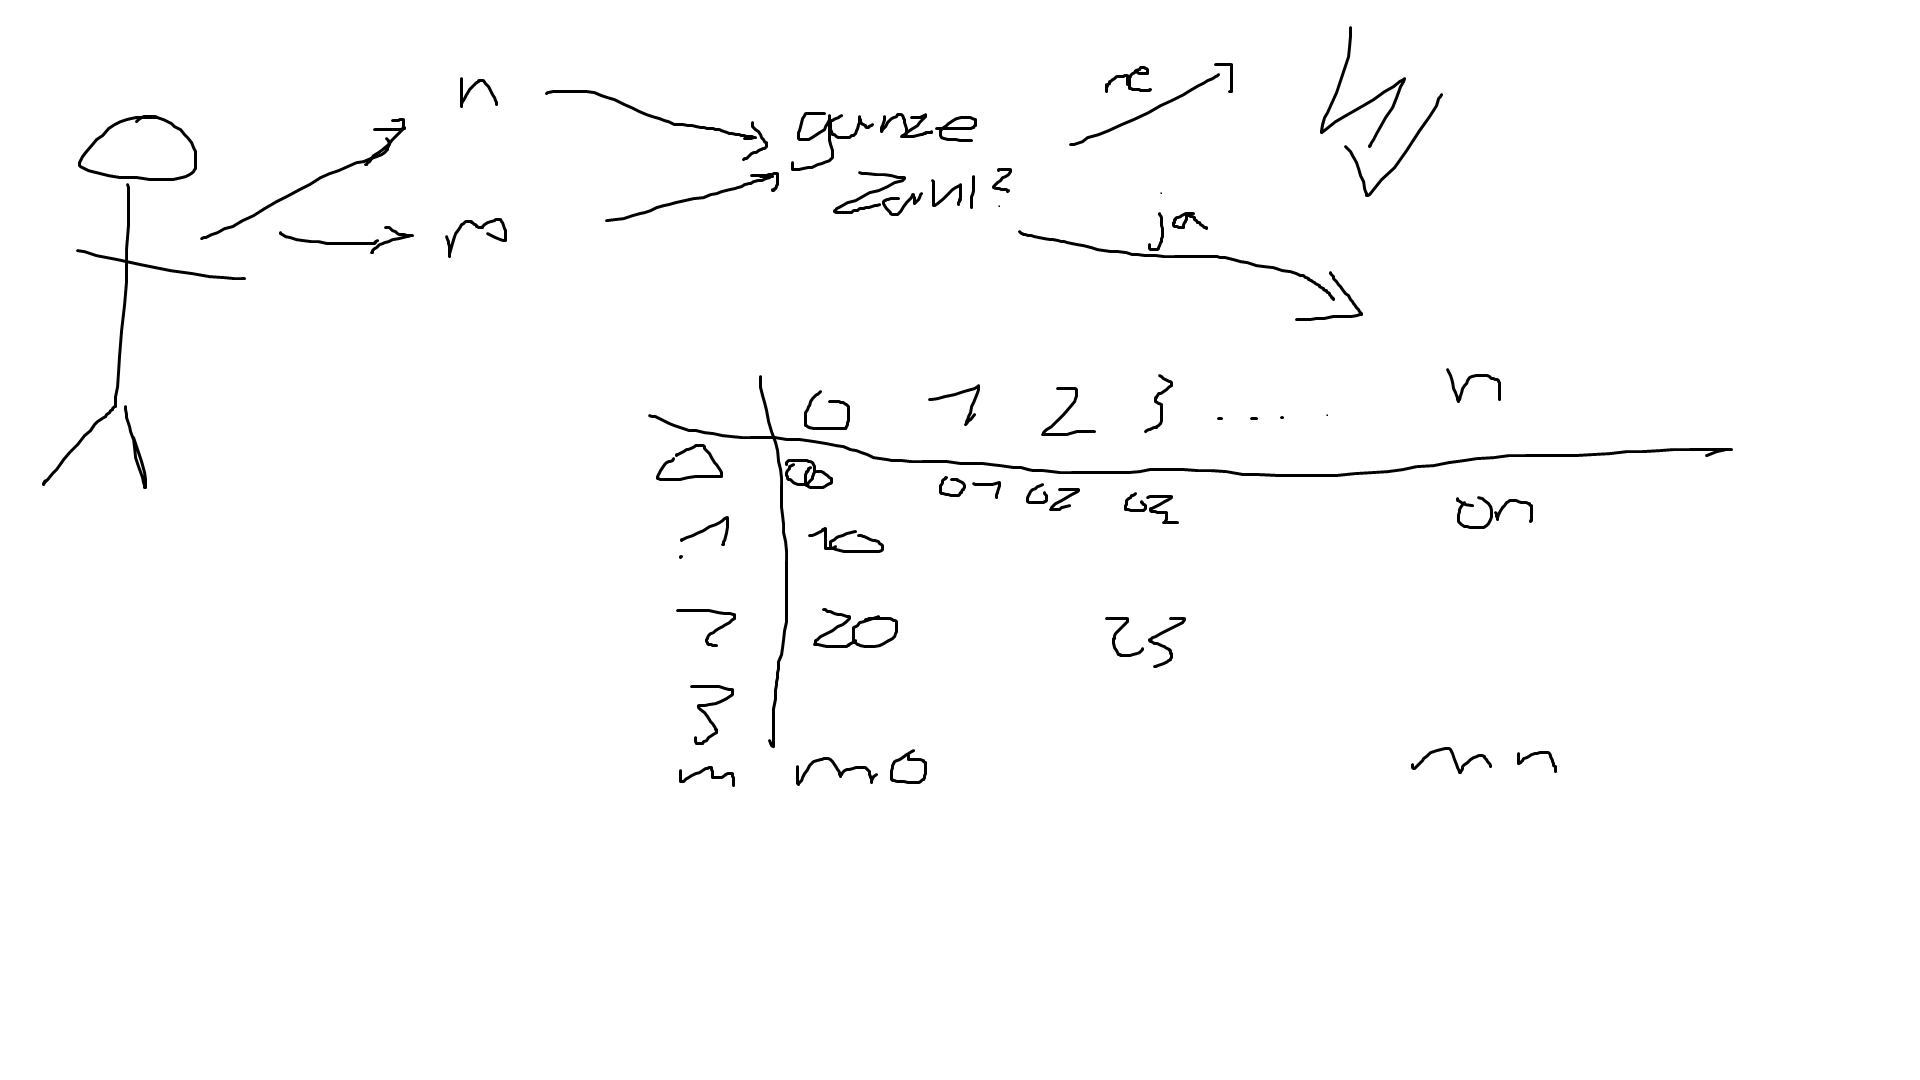 n
m
ganze
Zahl?
ne
ja
0 1 2 3 .... n
0 00 01 02 03 0n
1 10
2 20 23
3
m m0 mn